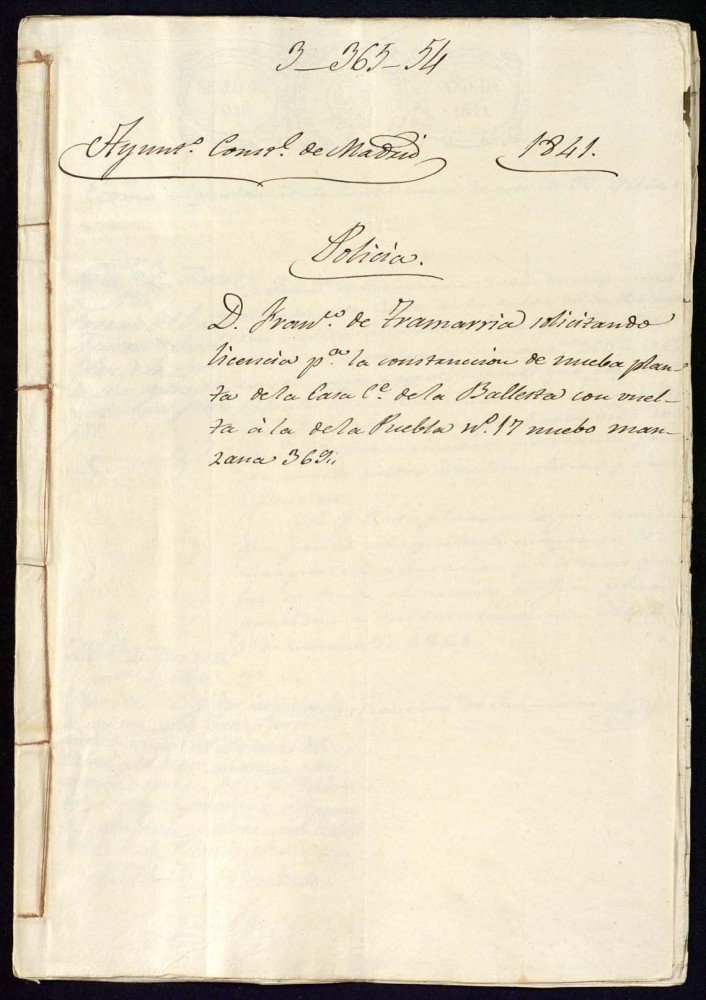 3-365-54
Ayunt.º Const.l de Madrid 1841.
Policía.
D. Fran.co de Tramarria solicitando
licencia p.a la construccion de nueba plan-
ta de la Casa C.e de la Ballesta con vuel-
ta à la de la Puebla Nº. 17 nuebo man-
zana 369.